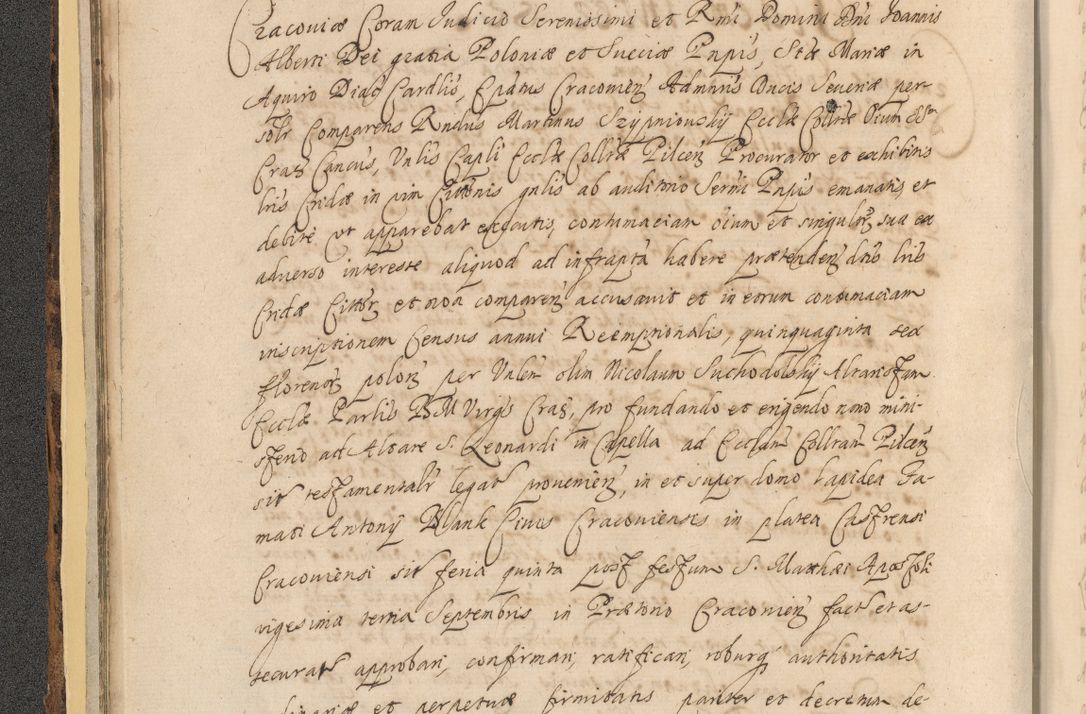 Cracoviæ Coram Judicio Serenissimi et Rmi Domini Dni Joannis
Alberti Dei gratia Poloniæ et Sueciæ Pnpis, Stæ Mariæ in
Aquiro Diac Cardlis, Epatus Cracovien Admnris Ducis Severiæ per-
solr Comparens Rndus Martinus Szypniowskij Eccle Collte Oium SStm
Crac Cancus, Vnlis Capli Eccle Collte Pilcen Procurator et exhibitis
lris Cridæ in vim Cittonis gnlis ab auditorio Sermi Pnpis emanatis, et
debite ut apparebat executis, contumaciam oium et singulor sua ex
adverso interesse aliquod ad infrapta habere prætenden dris lris
Cridæ Cittor et non comparen accusavit et in eorum contumaciam
inscriptionem Census annui Reemptionalis, quinquaginta sex
florenor polon per Vnlem olim Nicolaum Suchodolskij Altaristam
Eccle Parlis BM Virgis Crac, pro fundando et erigendo novo mini-
sterio ad Altare S. Leonardi in Capella ad Ecclam Collram Pilcen
sit testamentalr legat provenien, in et super domo lapidea Fa-
mati Antonij Blank Civis Cracoviensis in platea Castrensi
Cracoviensi sit feria quinta post festum S. Matthæi Apostoli
vigesima tertia Septembris in Prætorio Cracovien fact et as-
securat approbari, confirmari, ratificari, roburq authoritatis
et perpetuæ firmitatis pariter et decretum de-